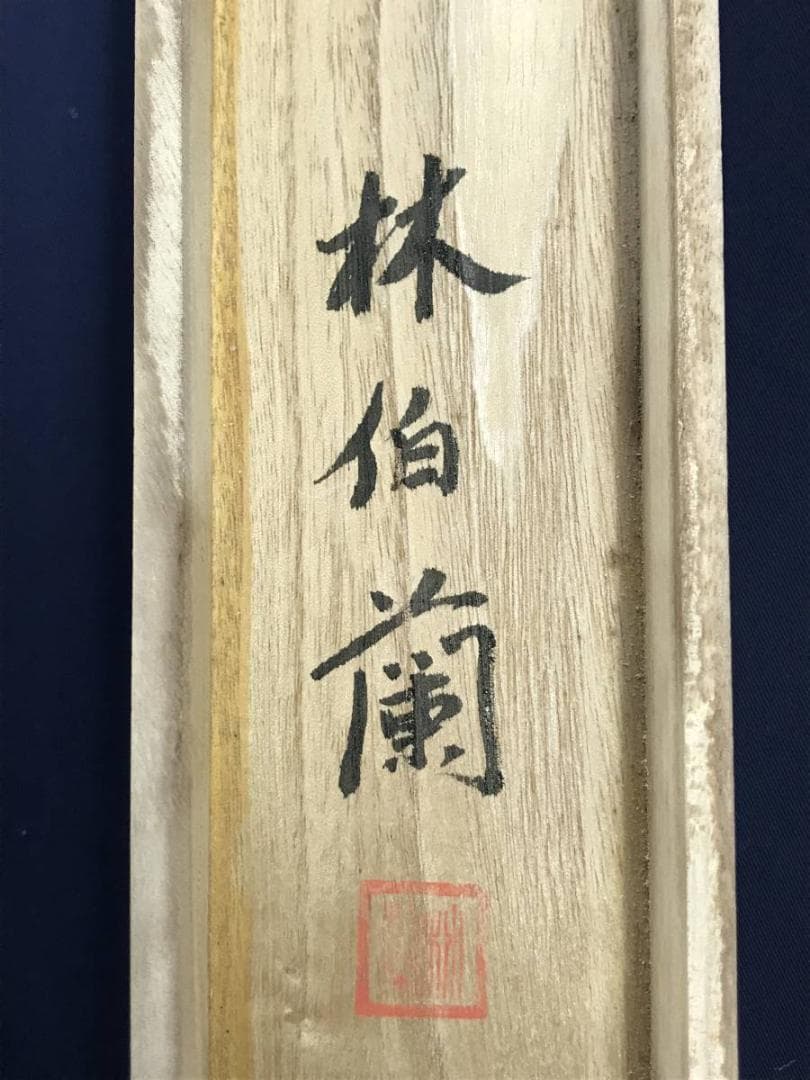 林伯蘭